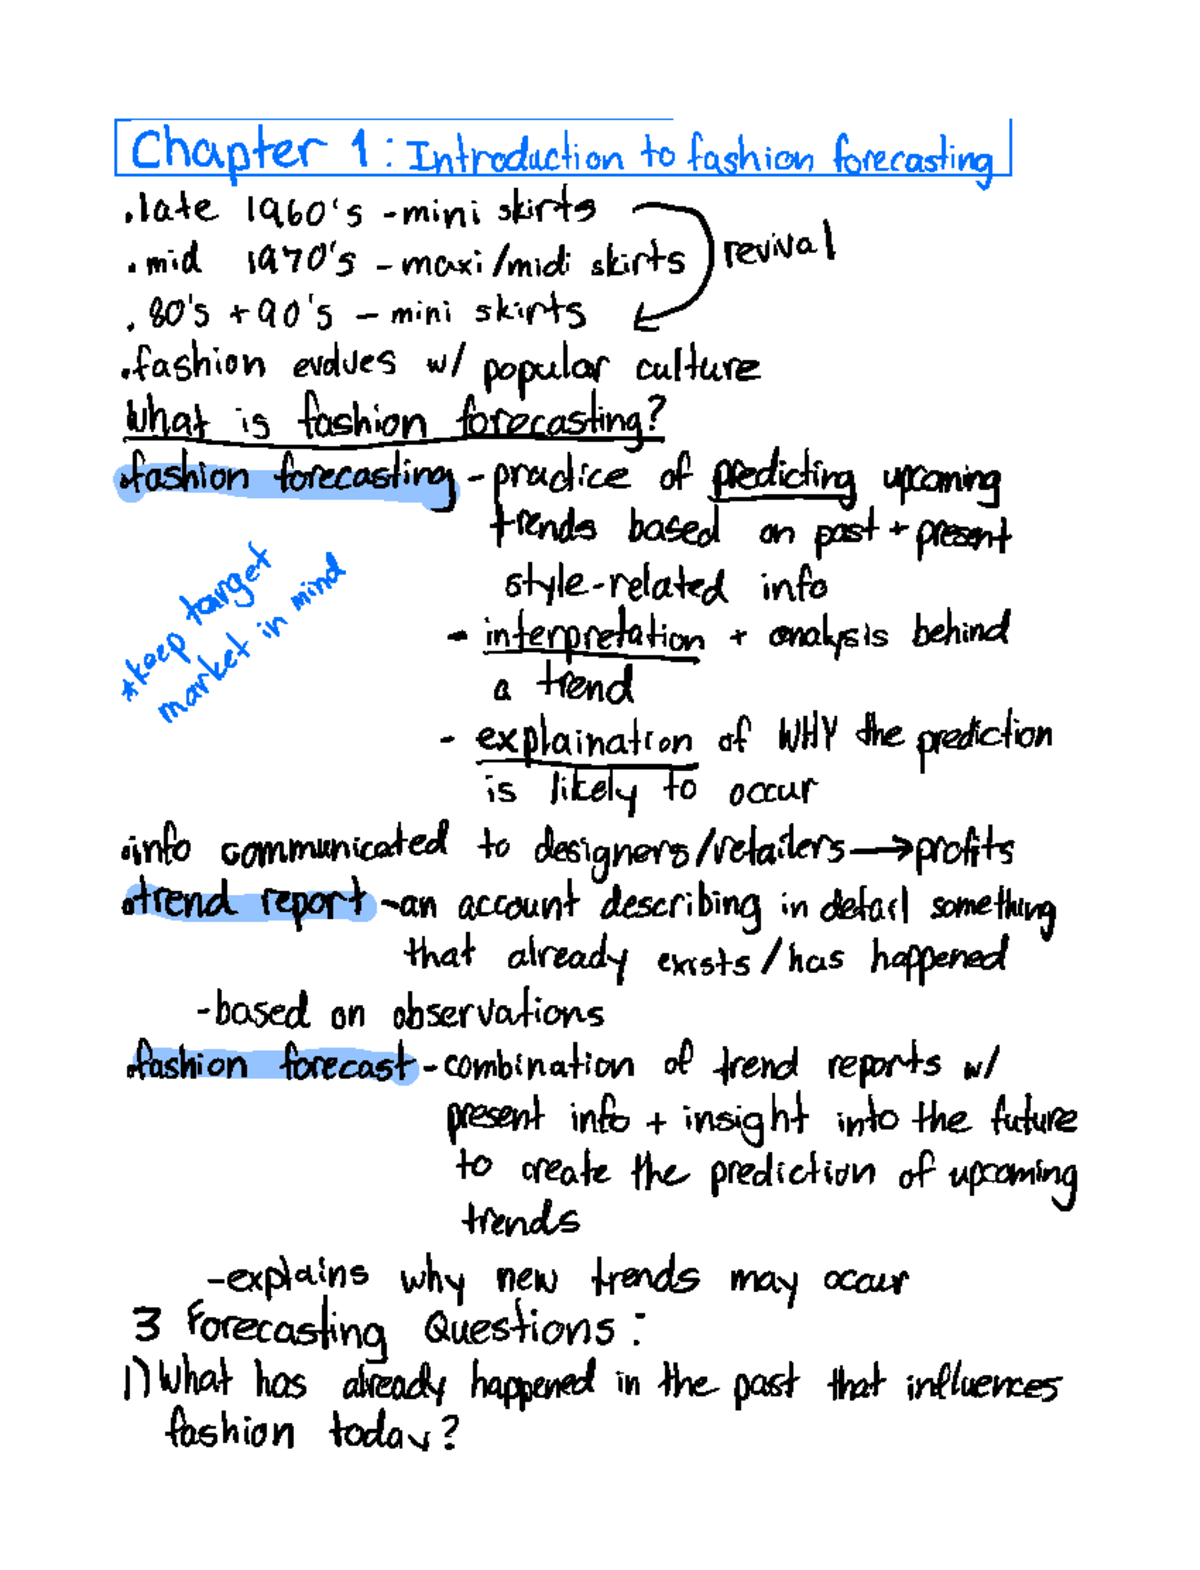 Chapter 1: Introduction to fashion forecasting
.late 1960's - mini skirts
.mid 1970's - maxi/midi skirts
revival
.80's + 90's - mini skirts
.fashion evolves w/ popular culture
What is fashion forecasting?
.fashion forecasting - practice of predicting upcoming
trends based on past + present
style-related info
*keep target
market in mind
- interpretation + analysis behind
a trend
- explaination of WHY the prediction
is likely to occur
.info communicated to designers/retailers → profits
.trend report - an account describing in detail something
that already exists/has happened
-based on observations
.fashion forecast - combination of trend reports w/
present info + insight into the future
to create the prediction of upcoming
trends
-explains why new trends may occur
3 Forecasting Questions:
1) What has already happened in the past that influences
fashion today?